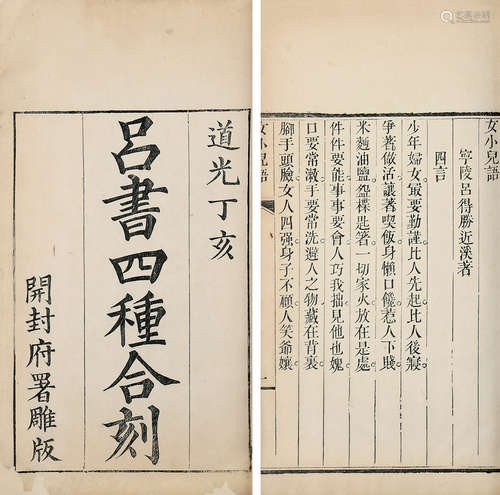 道光丁亥
呂書四種合刻
開封府署雕版
女小兒語
寧陵呂得勝近溪著
四言
少年婦女最要勤謹比人先起比人後寢
爭著做活讓著喫飯身懶口饞惹人下賤
米麵油鹽碗楪匙箸一切家火放在是處
件件要能事事要會人巧我拙見他也愧
口要常漱手要常洗避人之物藏在背裏
腳手頭臉女人四强身子不顧人笑爺孃
女小兒語